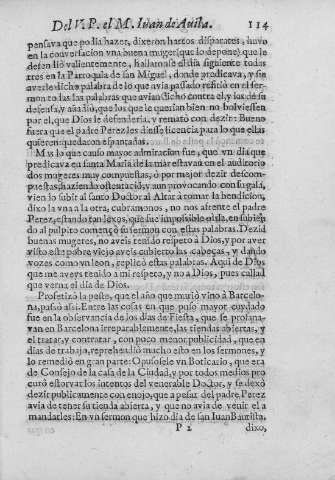 Del V. P. el M. Iuan de Auila. 114
pensava que podia hazer, dixeron hartos disparates, huvo
en la conversacion vna buena muger (que lo depone) que le
defendiò valientemente, hallaronse el dia siguiente todas
tres en la Parroquia de san Miguel, donde predicava, y sin
averle dicho palabra de lo que avia passado refitiò en el ser-
mon todas las palabras que avian dicho contra el, y los de su
defensa, y añadiò, que los que le querian bien no bolviessen
por el, que Dios le defenderia, y rematò con dezir: Bueno
fuera que el padre Perez les diesse licencia para lo que ellas
quieren: quedaron espantadas.
Mas lo que causò mayor admiracion fue, que vn dia que
predicava en santa Maria de la mar estavan en el auditorio
dos mugeres muy compuestas, ò por mejor dezir descom-
puestas, haziendo ostentaciò, y aun provocando con su gala,
vien lo subir al santo Doctor al Altar à tomar la bendicion,
dixo la vna à la otra, cubramonos, no nos afrente el padre
Perez, estando tan lexos, que fue impossible oirla, en subien
do al pulpito començò su sermon con estas palabras. Dezid
buenas mugeres, no aveis tenido respeto à Dios, y por aver
visto este pobre viejo aveis cubierto las cabeças, y dando
vozes como vn leon, replicò estas palabras. Aqui de Dios
que me aveys tenido à mi respeto, y no à Dios, pues callad
que verna el dia de Dios.
Profetizò la peste, que el año que muriò vino à Barcelo-
na, passò assi. Entre las cosas en que puso mayor cuydado
fue en la observancia de los dias de Fiesta, que se profana-
van en Barcelona irreparablemente, las tiendas abiertas, y
el tratar, y contratar, con poco menor publicidad, que en
dias de trabajo, reprehendiò mucho esto en los sermones, y
lo remediò en gran parte: Opusosele vn Boticario, que era
de Consejo de la casa de la Ciudad, y por todos medios pro
curò estorvar los intentos del venerable Doctor, y se dexò
dezir publicamente con enojo, que à pesar del padre Perez
avia de tener su tienda abierta, y que no avia de venir el a
mandarles: En vn sermon que hizo dia de san Iuan Bautista,
P 2 dixo,